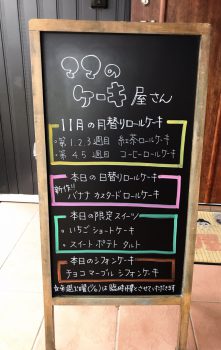 ??の
ケーキ屋さん
11月の月替りロールケーキ
・第1.2.3週目 紅茶ロールケーキ
・第4.5週目 コーヒーロールケーキ
本日の日替りロールケーキ
新作!!
バナナカスタードロールケーキ
本日の限定スイーツ
・いちごショートケーキ
・スイートポテトタルト
本日のシフォンケーキ
チョコマーブルシフォンケーキ
臨時休業とさせていただきます